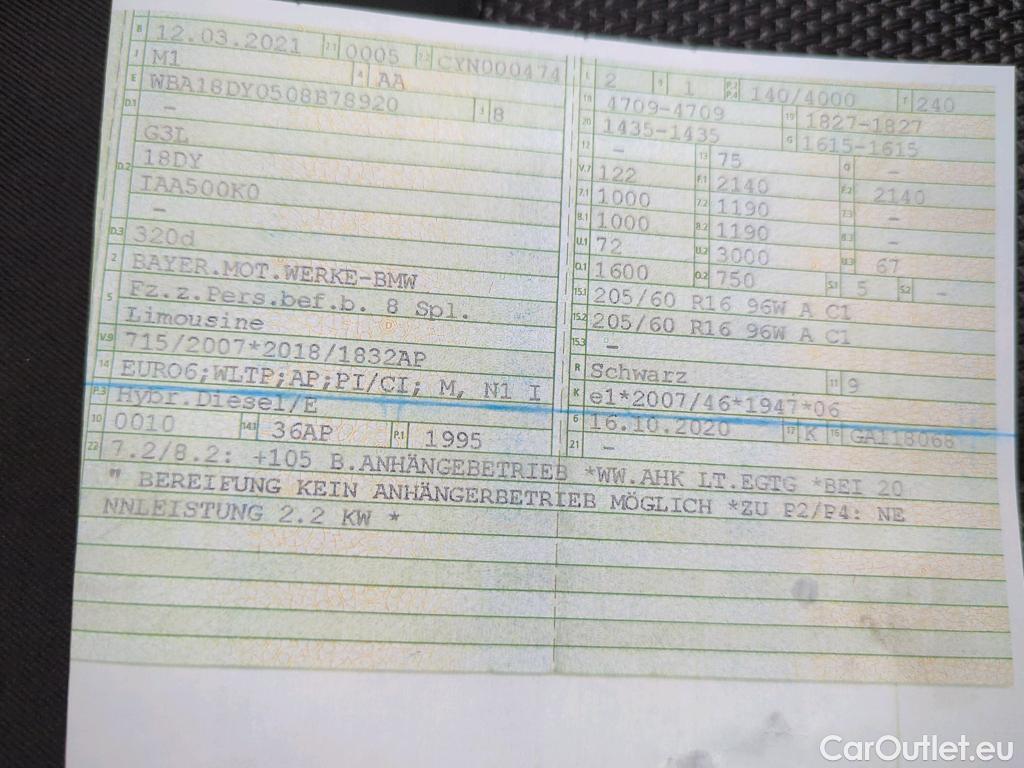 B 12.03.2021 2.1 0005 2.2 CYN000474
J M1 4 AA
E WBA18DY0508B78920 3 8
D.1 –
G3L
D.2 18DY
IAA500K0
–
D.3 320d
2 BAYER.MOT.WERKE-BMW
5 Fz.z.Pers.bef.b. 8 Spl.
Limousine
V.9 715/2007*2018/1832AP
14 EURO6;WLTP;AP;PI/CI; M, N1 I
P.3 Hybr.Diesel/E
10 0010 14.1 36AP P.1 1995
L 2 9 1 P.2 P.4 140/4000 T 240
18 4709-4709 19 1827-1827
20 1435-1435 G 1615-1615
12 – 13 75 Q –
V.7 122 F.1 2140 F.2 2140
7.1 1000 7.2 1190 7.3 –
8.1 1000 8.2 1190 8.3 –
U.1 72 U.2 3000 U.3 67
O.1 1600 O.2 750 S.1 5 S.2 –
15.1 205/60 R16 96W A C1
15.2 205/60 R16 96W A C1
15.3 –
R Schwarz 11 9
K e1*2007/46*1947*06
6 16.10.2020 17 K 16 GA118068
21 –
22 7.2/8.2: +105 B.ANHÄNGEBETRIEB *WW.AHK LT.EGTG *BEI 20
" BEREIFUNG KEIN ANHÄNGERBETRIEB MÖGLICH *ZU P2/P4: NE
NNLEISTUNG 2.2 KW *
CarOutlet.eu